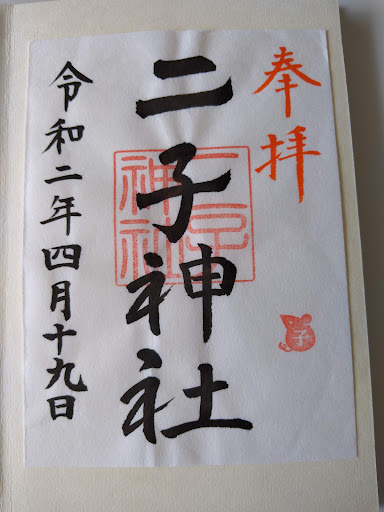 奉拝
二子神社
二子神社
子
令和二年四月十九日